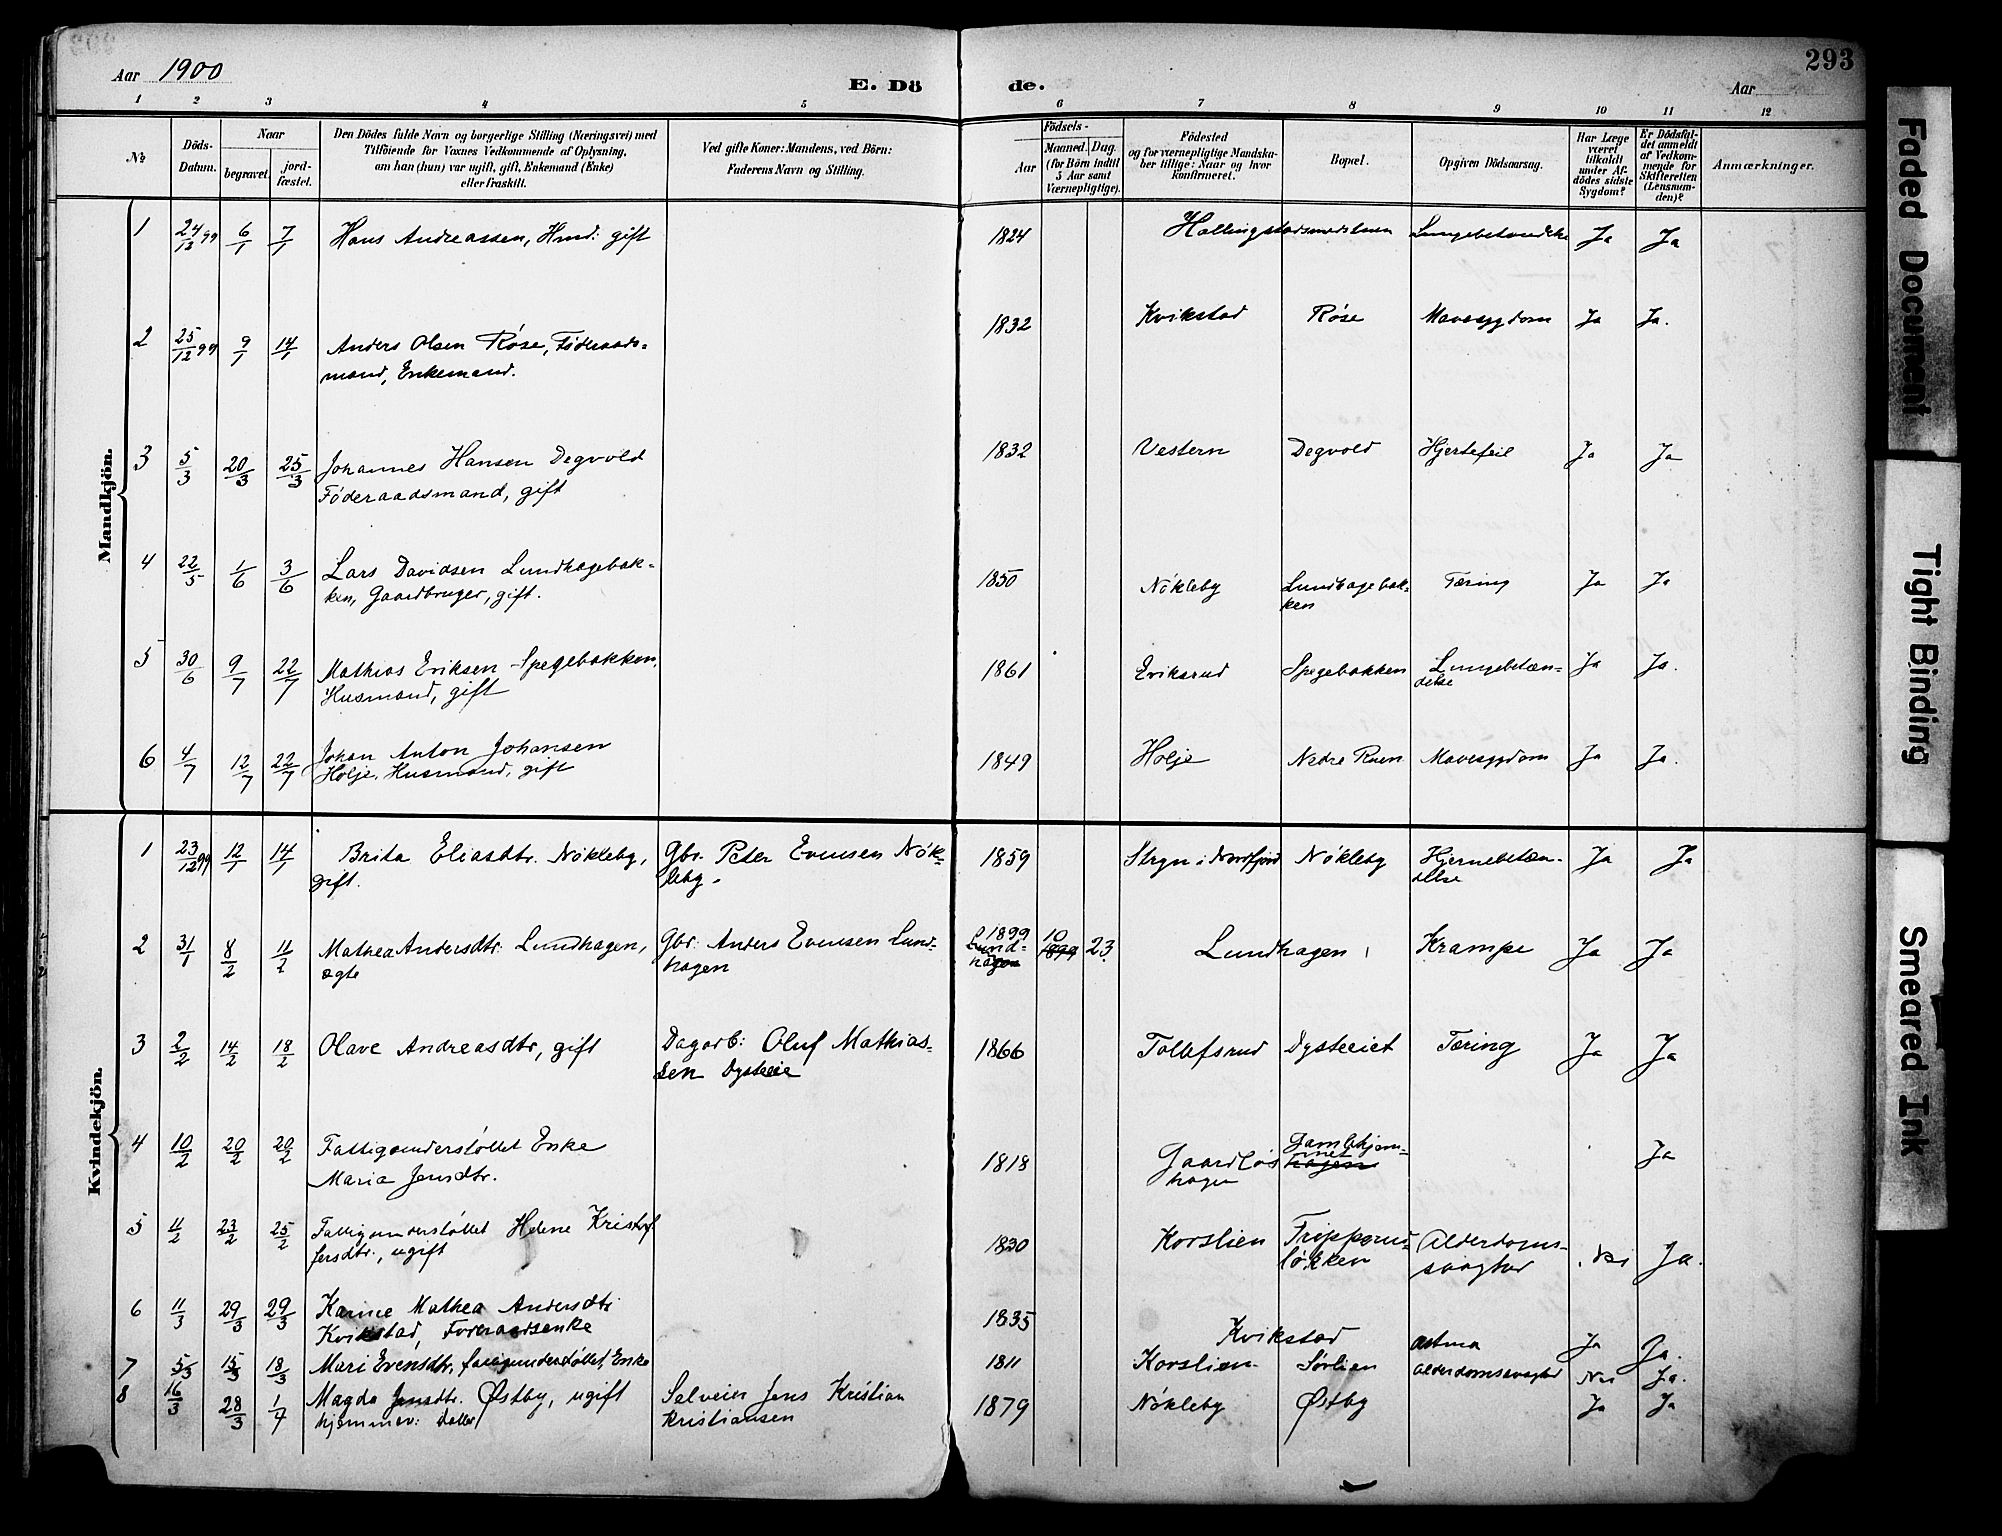 293
Aar 1900
E. Dö de.
Aar
1 2 3 4 5 6 7 8 9 10 11 12
No
Döds-Datum.
Naar
begravet.
jord-fæstet.
Den Dödes fulde Navn og borgerlige Stilling (Næringsvei) med
Tilföiende for Voxnes Vedkommende af Oplysning,
om han (hun) var ugift, gift, Enkemand (Enke)
eller fraskilt.
Ved gifte Koner: Mandens, ved Börn:
Faderens Navn og Stilling.
Födsels-
Aar
Maaned. Dag.
(for Börn indtil
5 Aar samt
Værnepligtige).
Födested
og for værnepligtige Mandska-
ber tillige: Naar og hvor
konfirmeret.
Bopæl.
Opgiven Dödsaarsag.
Har Læge
været
tilkaldt
under Af-
dödes sidste
Sygdom?
Er Dödsfal-
det anmeldt
af Vedkom-
mende for
Skifteretten
(Lensman-
den)?
Anmærkninger.
Mandkjön.
1 24/12 99 6/1 7/1 Hans Andreassen, Hmd: gift 1824 Ja Ja
2 25/12 99 9/1 14/1 Anders Olsen Røse, Føderaads-
mand, Enkemand. 1832 Kvikstad Røse Mavesygdom Ja Ja.
3 5/3 20/3 25/3 Johannes Hansen Degvold
Føderaadsmand, gift 1832 Vestern Degvold Hjertefeil Ja Ja
4 22/5 1/6 3/6 Lars Davidsen Lundhagebak-
ken, Gaardbruger, gift. 1850 Nökleby Lundhagebak-
ken Tæring Ja Ja
5 30/6 9/7 22/7 Mathias Eriksen Spegebakken,
Husmand, gift 1861 Eriksrud Spegebakken Lungebetæn-
delse Ja Ja.
6 4/7 12/7 22/7 Johan Anton Johansen
Holje, Husmand, gift 1849 Holje Nedre Ruen Mavesygdom Ja Ja.
Kvindekjön.
1 23/12 99 12/1 14/1 Brita Eliasdtr. Nökleby,
gift. Gbr. Peter Evensen Nök-
leby. 1859 Stryn i Nordfjord Nökleby Hjernebetæn-
delse Ja Ja
2 31/1 8/2 11/2 Mathea Andersdtr. Lundhagen,
ægte Gbr: Anders Evensen Lund-
hagen 1899 Lund-
hagen 10 1899 23. Lundhagen Krampe Ja Ja
3 2/2 14/2 18/2 Olave Andreasdtr, gift Dagarb: Oluf Mathias-
sen Dysteeie 1866 Tollefsrud Dysteeiet Tæring Ja Ja
4 10/2 20/2 20/2 Fattigunderstøttet Enke
Maria Jensdtr. 1818 Gaardløs
hagen Gamlehjem-
met hagen Ja
5 11/2 23/2 25/2 Fattigunderstøttet Helene Kristof
fersdtr., ugift 1830 Korslien løkken Alderdoms-
svaghed Nei Ja.
6 11/3 29/3 29/3 Karine Mathea Andersdtr
Kvikstad, Føderaadsenke 1835 Kvikstad Astma Ja Ja.
7 5/3 15/3 18/3 Mari Evensdtr, fattigunderstøttet Enke 1811 Korslien Sørlien Alderdomssvaghed Nei Ja.
8 16/3 28/3 1/4 Magda Jensdtr. Østby, ugift
hjemmev: Datter Selveier Jens Kristian
Kristiansen 1879 Nökleby Østby Ja Ja
Faded Document
Tight Binding
Smeared Ink